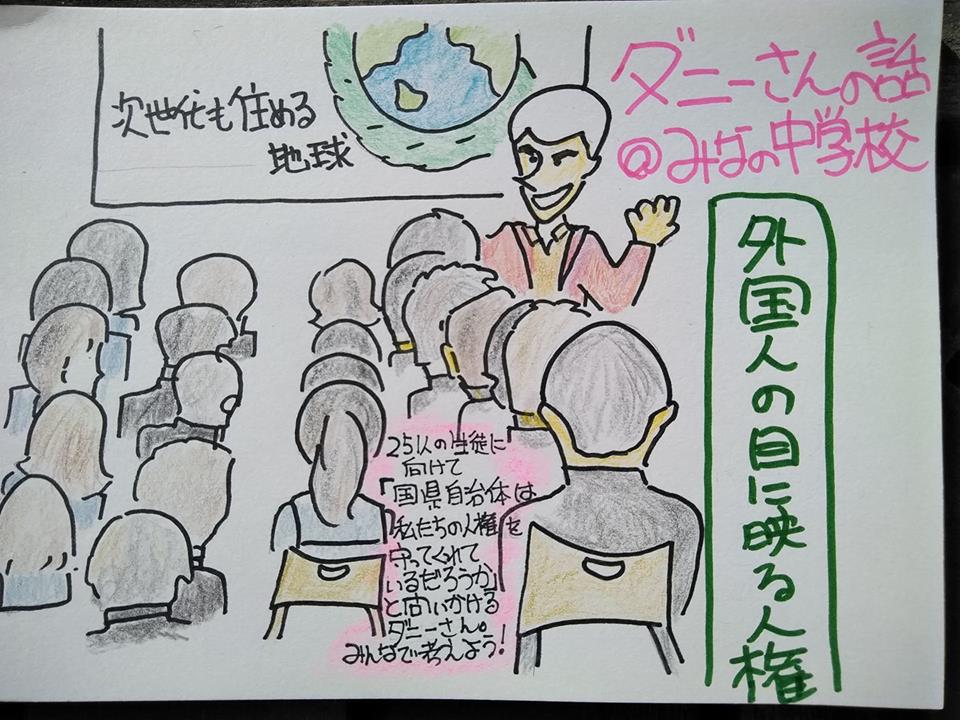 次世代も住める
地球
ダニーさんの話
@みなの中学校
外国人の目に映る人権
251人の生徒に
向けて
「国県自治体は
私たちの人権を
守ってくれて
いるだろうか」
と問いかける
ダニーさん。
みんなで考えよう!